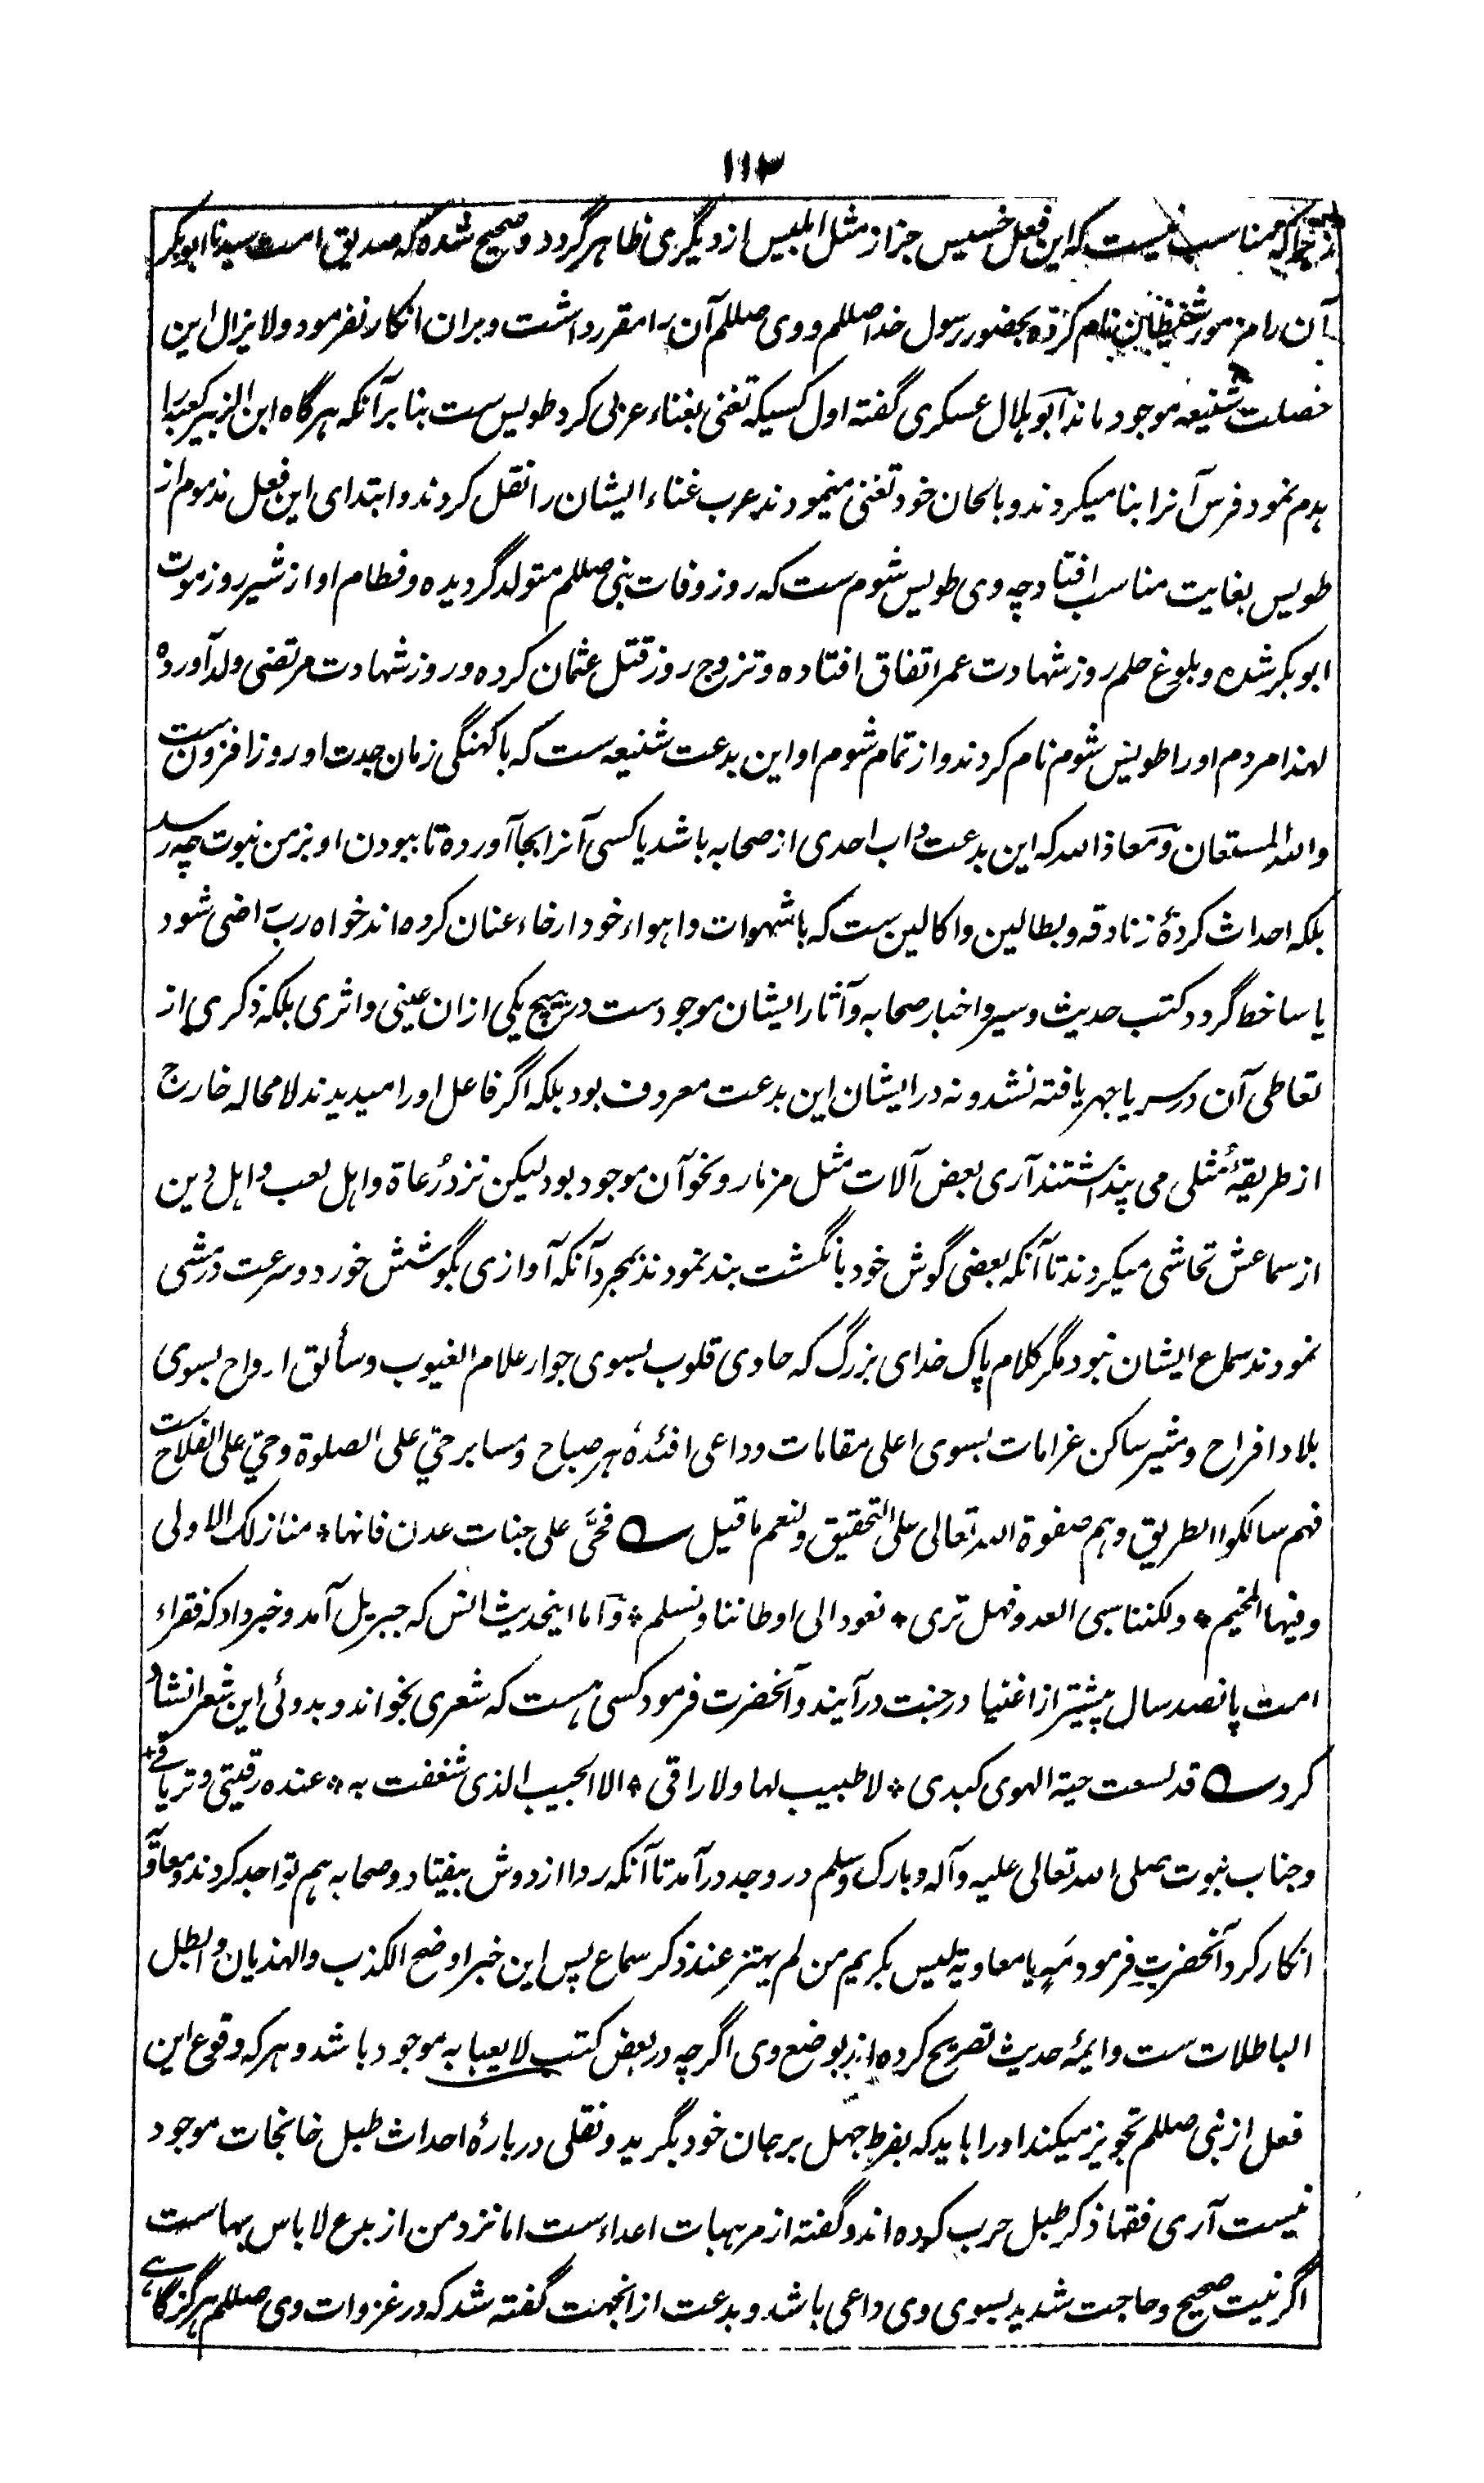 ۱۱۳
زیراکه مناسب نیست که این فعل خسیس جز از مثل ابلیس از دیگری ظاهر گردد و صحیح شده که صدیق امت سیدنا ابوبکر
آن را مزمور شیطان نام کرده بحضور رسول خدا صللم و وی صللم آن را مقرر داشت و بران انکار نفرمود و لا یزال این
خصلت شنیعه موجود ماند ابو هلال عسکری گفته اول کسیکه تغنی بغناء عربی کرد طویس ست بنابر آنکه هرگاه ابن الزبیر کعبه را
هدم نمود فرس آنرا بنا میکردند و بالحان خود تغنی مینمودند عرب غناء ایشان را نقل کردند و ابتدای این فعل مذموم از
طویس بغایت مناسب افتاد چه وی طویس شوم ست که روز وفات نبی صللم متولد گردیده و فطام او از شیر روز موت
ابوبکر شده و بلوغ حلم روز شهادت عمر اتفاق افتاده و تزوج روز قتل عثمان کرده و روز شهادت مرتضی ولد آورده
لهذا مردم او را طویس شوم نام کردند و از تمام شوم او این بدعت شنیعه ست که با کهنگی زمان جدت او روز افزون ست
والله المستعان و معاذ الله که این بدعت داب احدی از صحابه باشد یا کسی آنرا بجا آورده تا ببودن او بزمن نبوت چه رسد
بلکه احداث کردهٔ زنادقه و بطالین و اکالین ست که با شهوات و اهواء خود ارخاء عنان کرده اند خواه رب راضی شود
یا ساخط گردد کتب حدیث و سیر و اخبار صحابه و آثار ایشان موجودست در هیچ یکی از ان عینی و اثری بلکه ذکری از
تعاطی آن در سر یا جهر یافته نشد و نه در ایشان این بدعت معروف بود بلکه اگر فاعل او را میدیدند لامحاله خارج
از طریقهٔ مثلی می پنداشتند آری بعض آلات مثل مزمار و نحو آن موجود بود لیکن نزد رُعاة و اهل لعب و اهل دین
از سماعش تحاشی میکردند تا آنکه بعضی گوش خود بانگشت بند نمودند بمجرد آنکه آوازی بگوشش خورد و سرعت در مشی
نمودند سماع ایشان نبود مگر کلام پاک خدای بزرگ که حادی قلوب بسوی جوار علام الغیوب و سائق ارواح بسوی
بلاد افراح و مثیر ساکن غرامات بسوی اعلی مقامات و داعی افئدهٔ هر صباح و مسا بر حی علی الصلوة و حی علی الفلاح ست
فهم سالکوا الطریق و هم صفوة الله تعالی علی التحقیق و لنعم ما قیل ؎ فحیَّ علی جنات عدن فانها * منازلک الاولی
و فیها المخیم * و لکننا سبی العدو فهل تری * نعود الی اوطاننا و نسلم * و اما اینحدیث انس که جبریل آمد و خبر داد که فقراء
امت پانصد سال پیشتر از اغنیا در جنت در آیند و آنحضرت فرمود کسی هست که شعری بخواند و بدوئی این شعر انشاد
کرد ؎ قد لسعت حیة الهوی کبدی * لا طبیب لها و لا راقی * الا الحبیب الذی شغفت به * عنده رقیتی و تریاقی *
و جناب نبوت صلی الله تعالی علیه و آله و بارک و سلم در وجد در آمد تا آنکه ردا از دوش بیفتاد و صحابه هم تواجد کردند و معاویه
انکار کرد آنحضرت فرمود مَه یا معاویة لیس بکریم من لم یهتز عند ذکر سماع پس این خبر اوضح الکذب و الهذیان و ابطل
الباطلات ست و ایمهٔ حدیث تصریح کرده اند بوضع وی اگرچه در بعض کتب لا یعبا به موجود باشد و هر که وقوع این
فعل از نبی صللم تجویز میکند او را باید که بفرط جهل بر جان خود بگرید و نقلی دربارهٔ احداث طبل خانجات موجود
نیست آری فقها ذکر طبل حرب کرده اند و گفته از مرهبات اعداء ست اما نزد من از بدع لا باس بها ست
اگر نیت صحیح و حاجت شدید بسوی وی داعی باشد و بدعت از انجهت گفته شد که در غزوات وی صللم هرگز گاهے